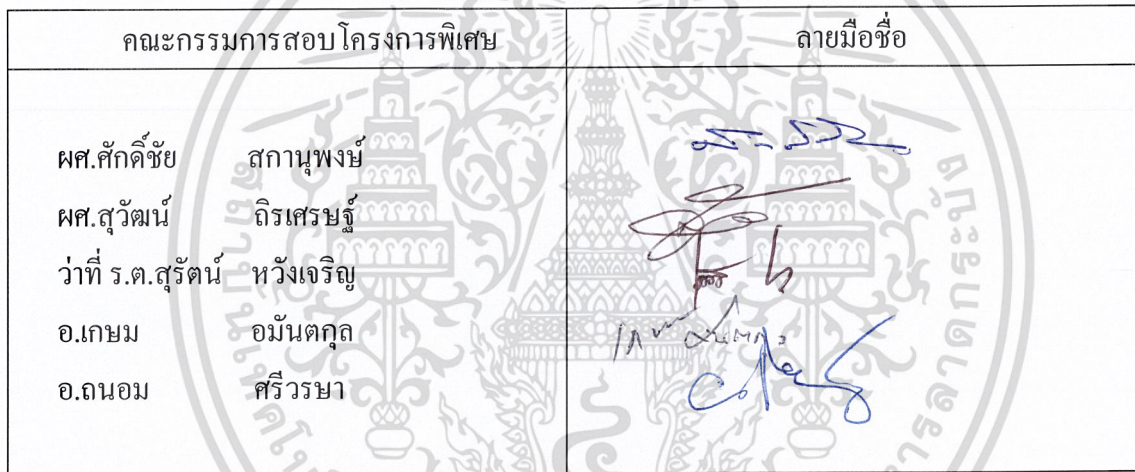 คณะกรรมการสอบโครงการพิเศษ ลายมือชื่อ
ผศ.ศักดิ์ชัย สกานุพงษ์
ผศ.สุวัฒน์ ถิรเศรษฐ์
ว่าที่ ร.ต.สุรัตน์ หวังเจริญ
อ.เกษม อมันตกุล
อ.ถนอม ศรีวรษา